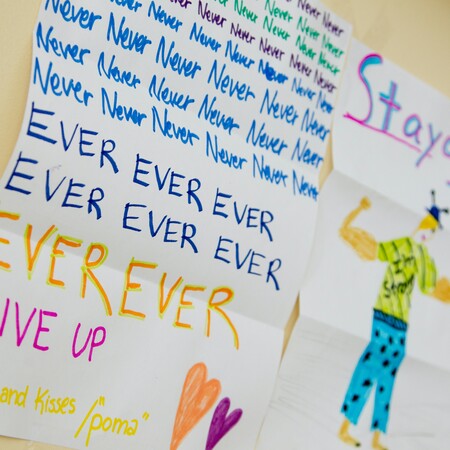 Never Never Never
Never Never Never Never
Never Never Never Never Never
Never Never Never Never Never Never
Never Never Never Never Never Never
Never Never Never Never Never Never
Never Never Never Never Never Never
EVER EVER EVER
EVER EVER EVER
EVER EVER
IVE UP
and Kisses / "poma"
Stay
I'm
Strong